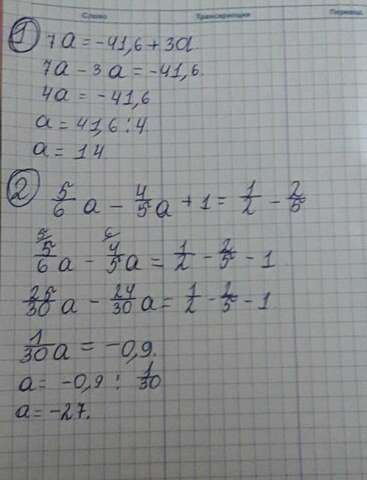 Слово Транскрипция Перевод
1 7a = -41,6 + 3a
7a - 3a = -41,6
4a = -41,6
a = 41,6 : 4
a = 14
2 5/6 a - 4/5 a + 1 = 1/2 - 2/5
5 6
5/6 a - 4/5 a = 1/2 - 2/5 - 1
25/30 a - 24/30 a = 1/2 - 2/5 - 1
1/30 a = -0,9.
a = -0,9 : 1/30
a = -27.